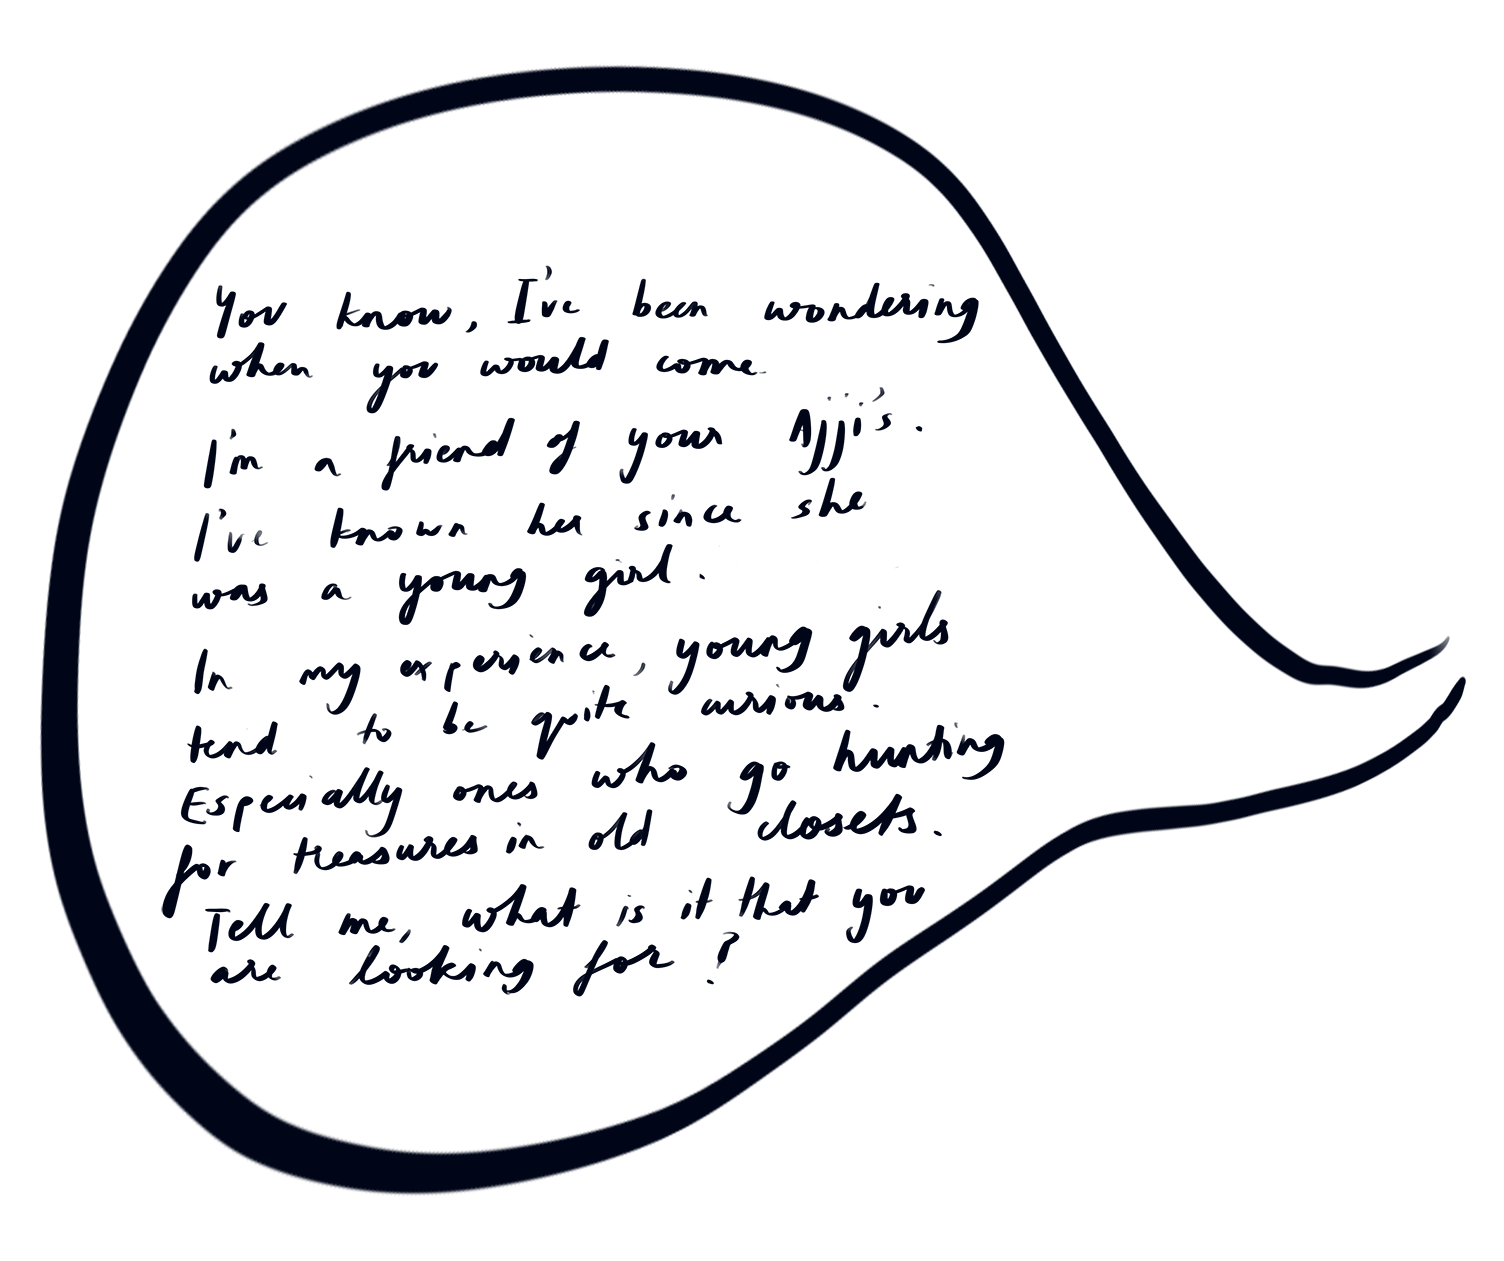 You know, I've been wondering
when you would come.
I'm a friend of your Ajji's.
I've known her since she
was a young girl.
In my experience, young girls
tend to be quite curious.
Especially ones who go hunting
for treasures in old closets.
Tell me, what is it that you
are looking for?